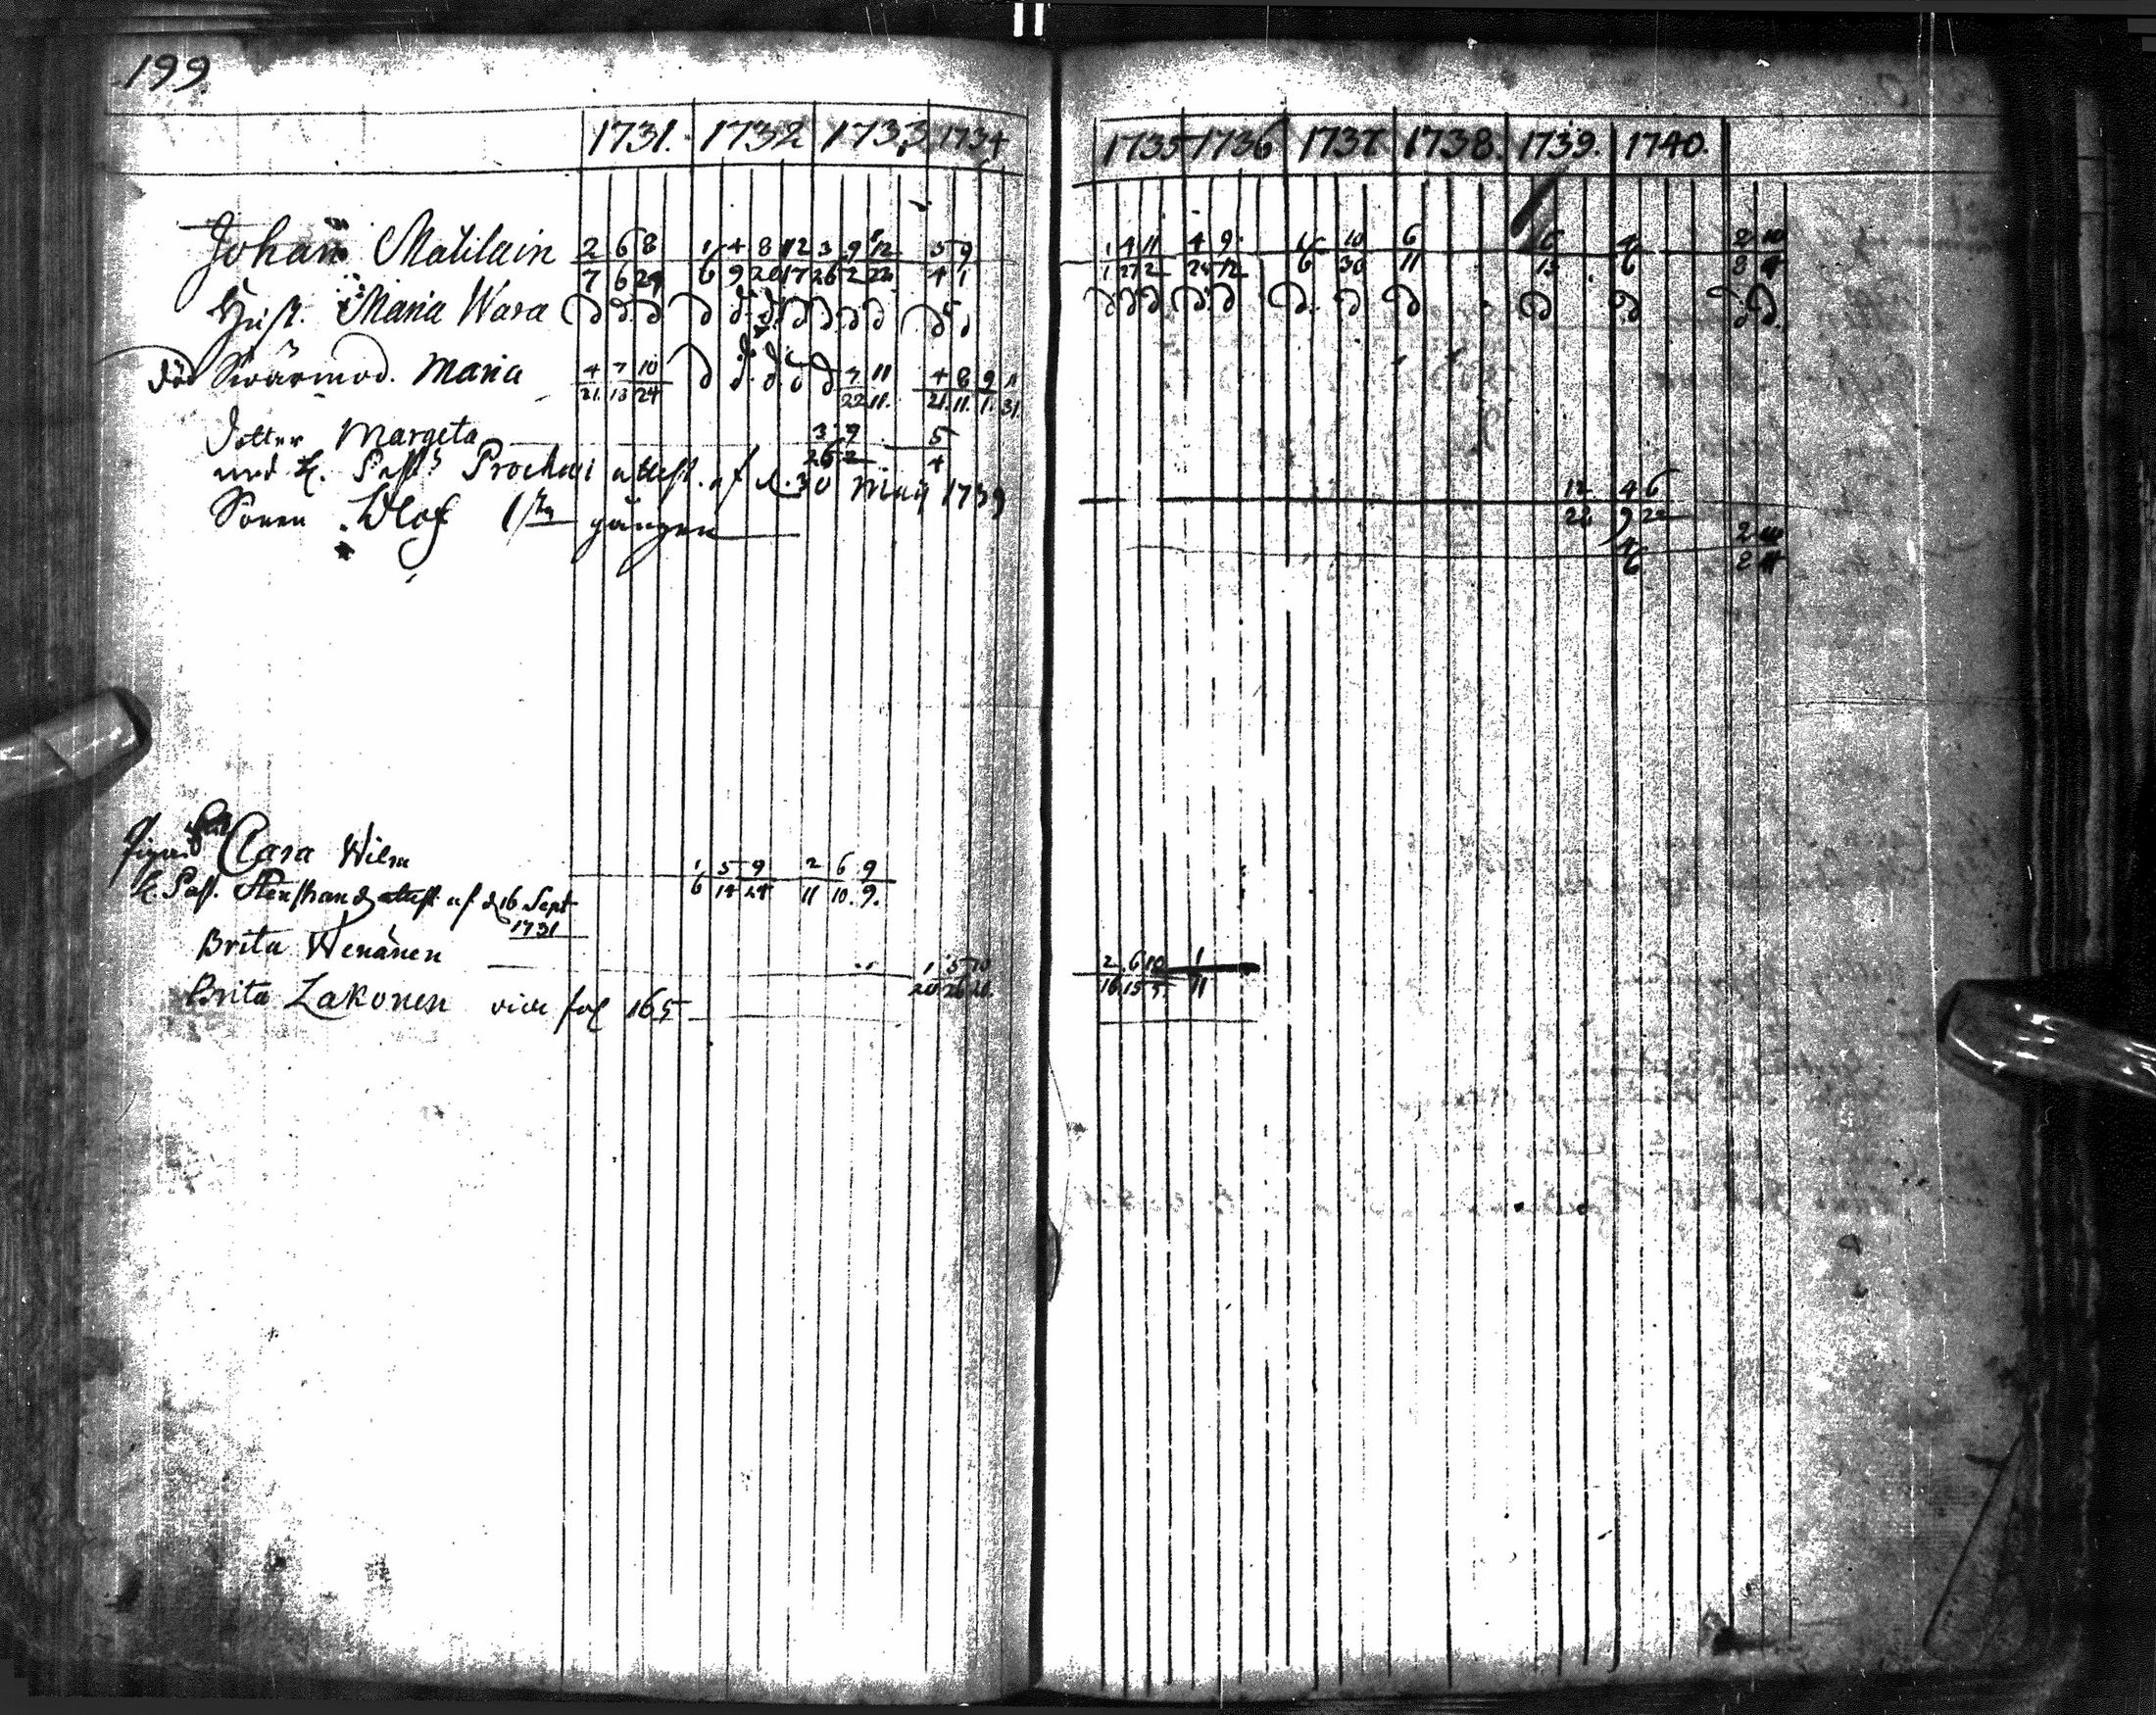 199.
1731. 1732 1733 1734 1735 1736 1737 1738. 1739. 1740.
Johan Matilain 2 6 8 1 4 8 12 3 9 12 5 9 1 4 11 4 9 10 6 6 4 2 10
7 6 29 6 9 20 17 26 2 22 4 1 1 27 2 24 12 6 30 11 13 6 8
Hust. Maria Wara
död Swärmod. Maria 4 7 10 7 11 4 8 9 11
21. 13 24 22 11. 21. 11. 1. 31.
dotter Margeta 3 9 5
26 2 4
med H. Past Prochei attest. af d. 30 Maij 1739 12 4 6
22 9 22
Sonen Olof 1sta gången 4 2 10
6 2
Pigan Clara Wilm 1 5 9 2 6 9
6 14 24 11 10. 9.
H Past. Stenstrand attest af d 16 Sept
1731
Brita Wenänen 1 5 10 2 6 10 1
20 26 16 15 11
Brita Lakonen vide fol 165